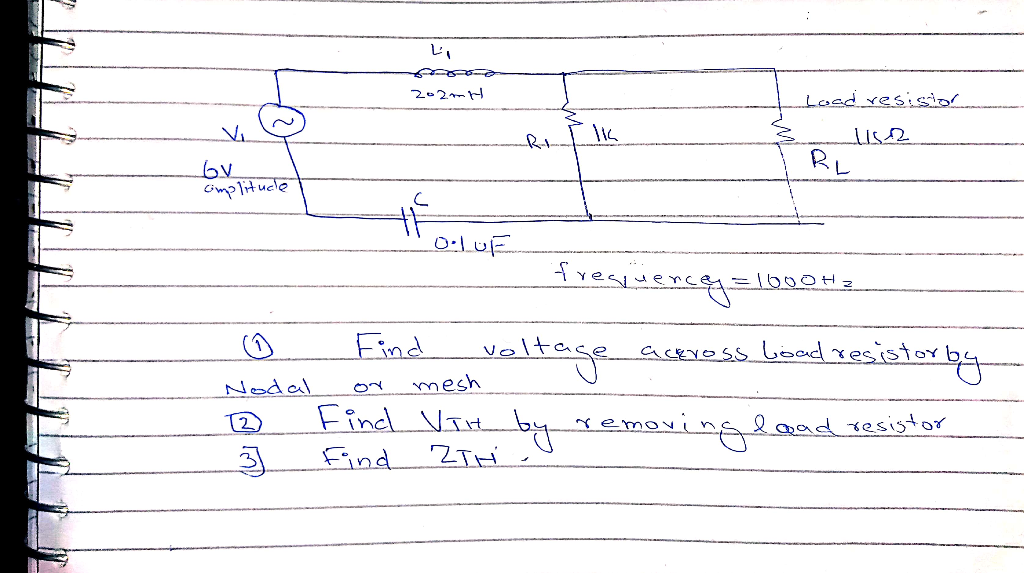 L1
202mH
Load resistor
V1
R1
1K
1KΩ
6V
RL
amplitude
C
0.1uF
frequency = 1000Hz
① Find voltage across load resistor by
Nodal or mesh
2 Find VTH by removing load resistor
3] Find ZTH.